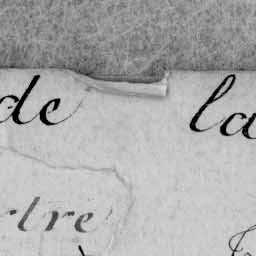 de la
rtre